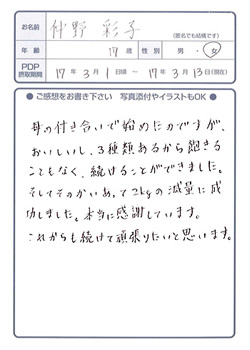 お名前 仲野 彩子 (匿名でも結構です)
年齢 17歳 性別 男・女
PDP摂取期間 17年3月1日頃〜17年3月13日(現在)
●ご感想をお書き下さい 写真添付やイラストもOK●
母の付き合いで始めたのですが、
おいしいし、3種類あるから飽きる
こともなく、続けることができました。
そしてそのかいあって2kgの減量に成
功しました。本当に感謝しています。
これからも続けて頑張りたいと思います。